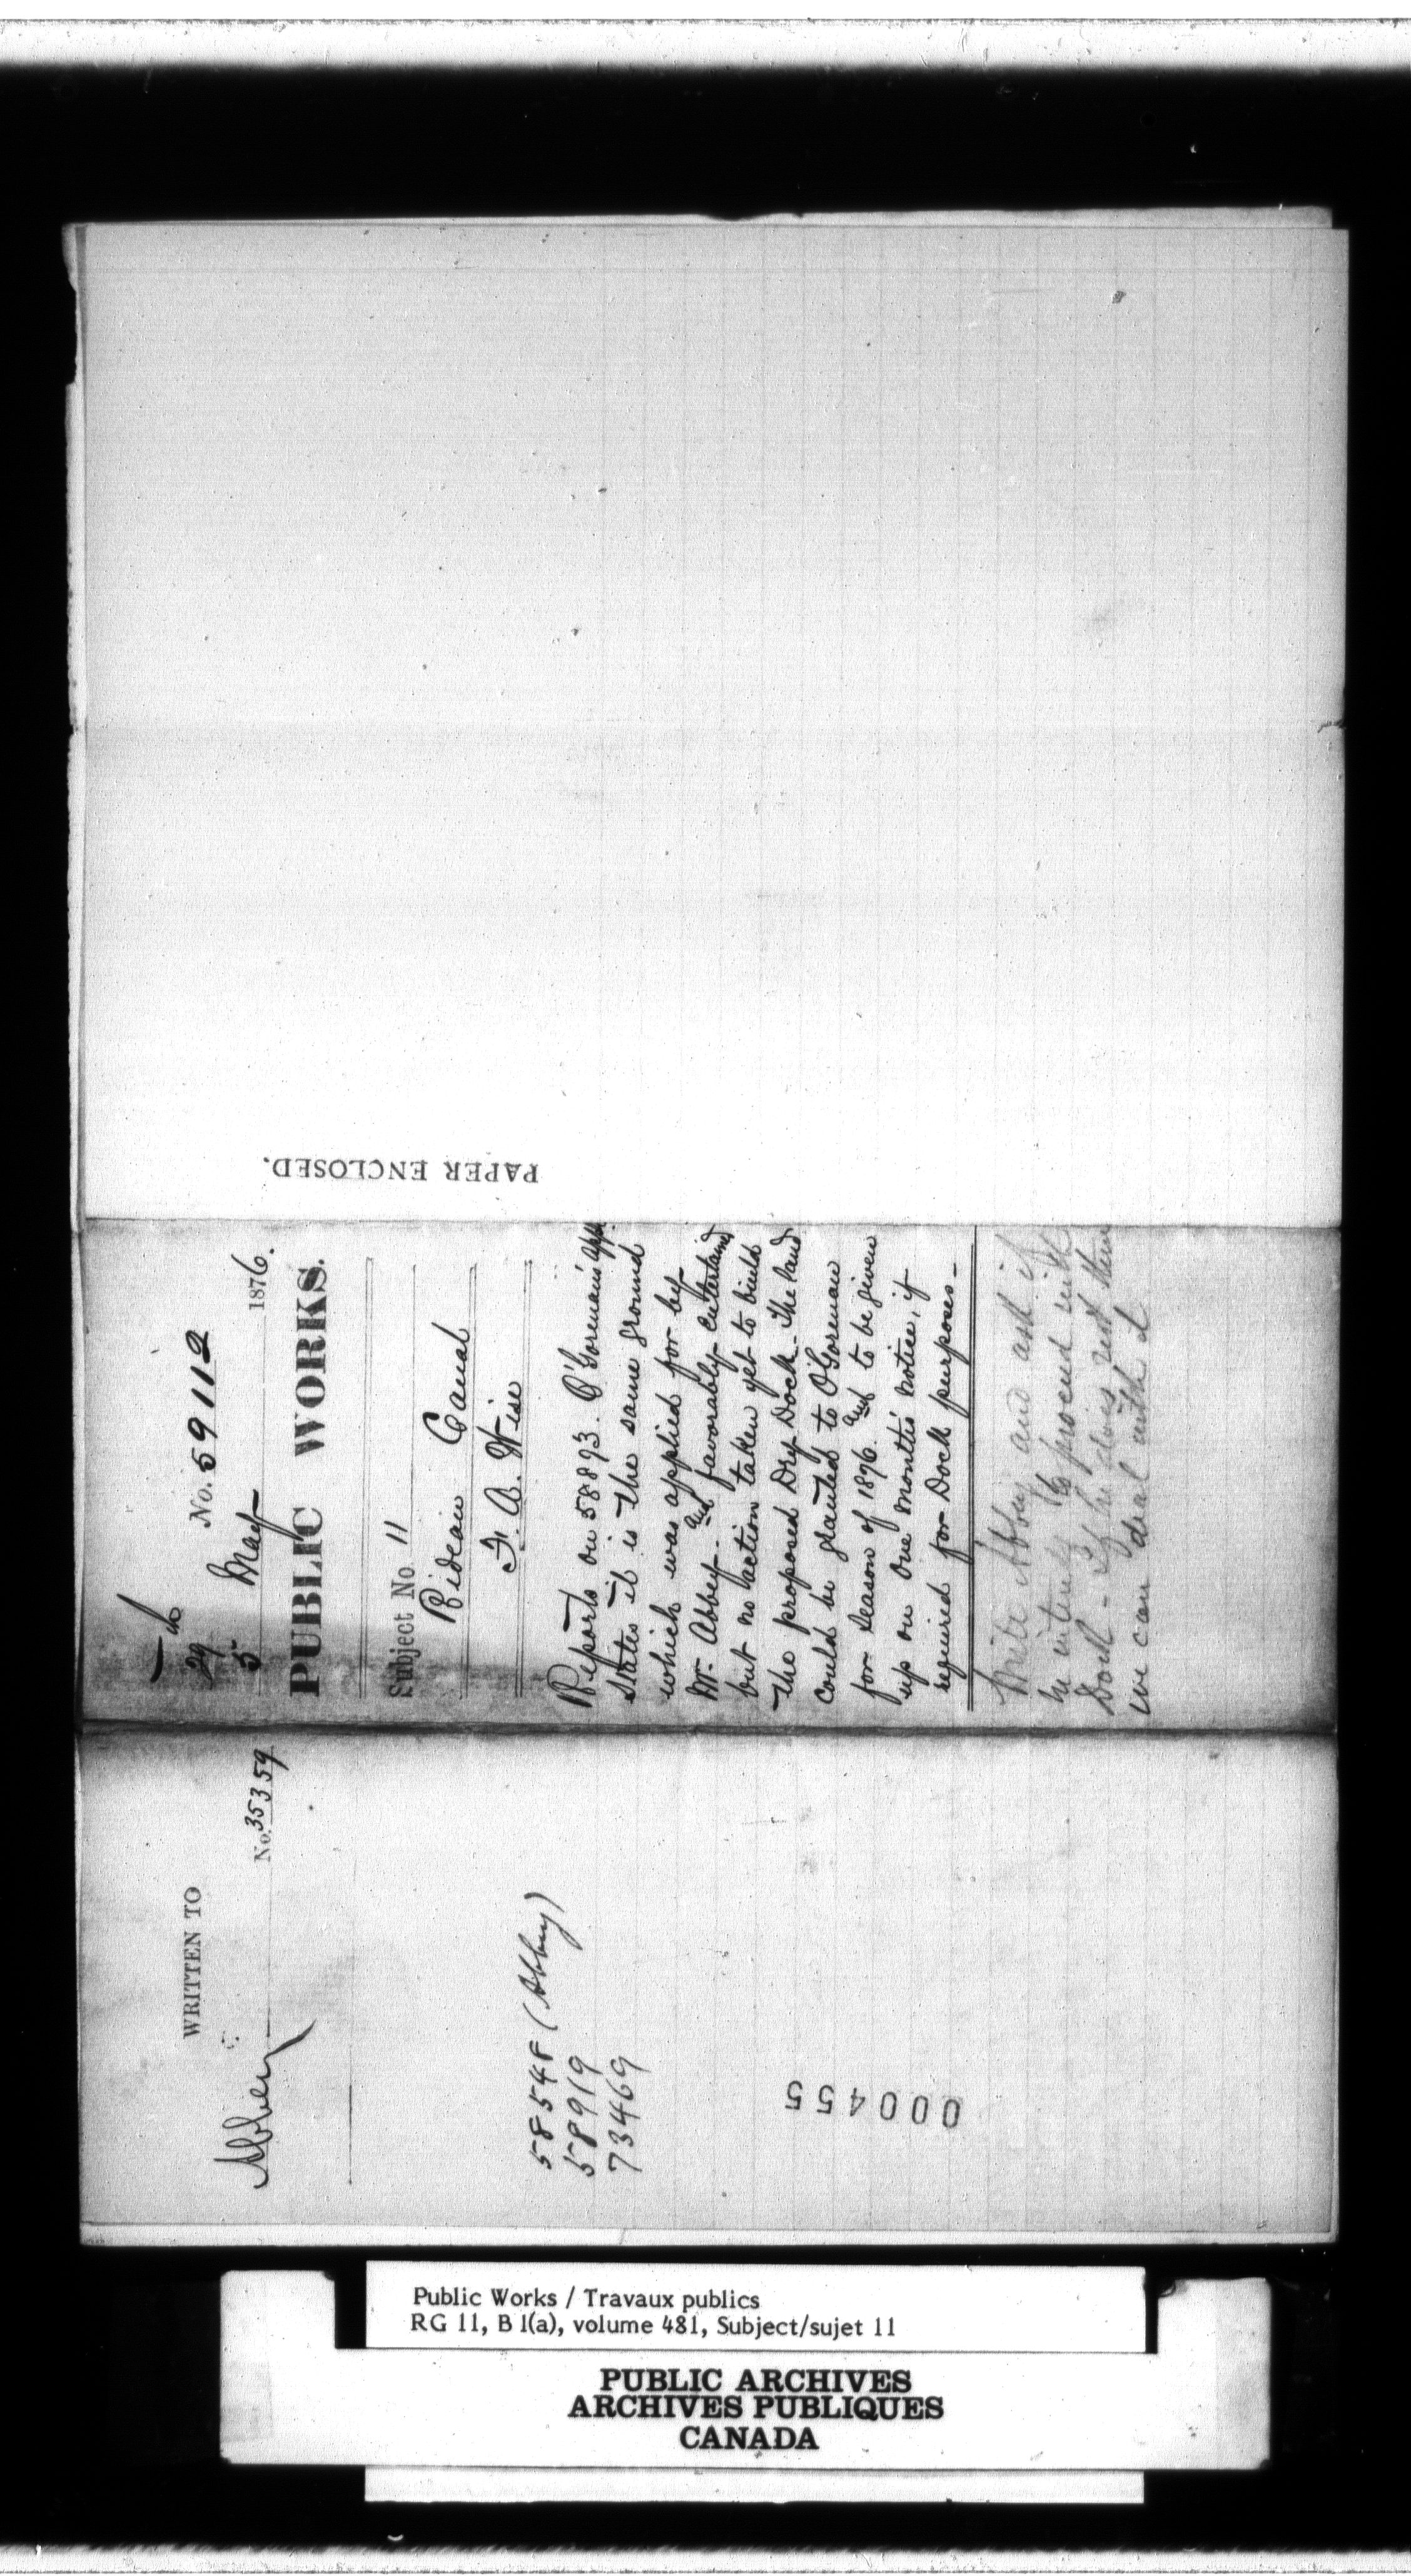 PAPER ENCLOSED.
No. 59112
29
5 May 1876.
PUBLIC WORKS.
Subject No 11
Rideau Canal
F. A. Wise
Reports on 58893. O'Gorman's appl.
States it is the same ground
which was applied for by
Mr. Abbey. and favorably entertained
but no action taken yet to build
the proposed Dry Dock. The land
could be granted to O'Gorman
for season of 1876. and to be given
up on one month's notice, if
required for Dock purposes_
Write Abbey and ask if
he intends to proceed with
Dock - If he does not then
we can deal with it
WRITTEN TO
No. 35359
Abbey
58548 (Abbey)
58919
73469
000455
Public Works / Travaux publics
RG 11, B 1(a), volume 481, Subject/sujet 11
PUBLIC ARCHIVES
ARCHIVES PUBLIQUES
CANADA